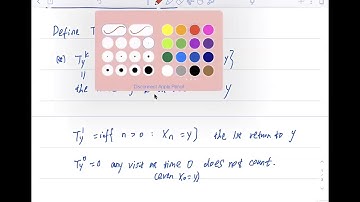 Define T
(*) T_y^k y}
the y
T_y^1 = inf{ n > 0 : X_n = y} the 1st return to y
T_y^0 = 0 any visit at time 0 does not count.
(even X_0 = y)
Disconnect Apple Pencil